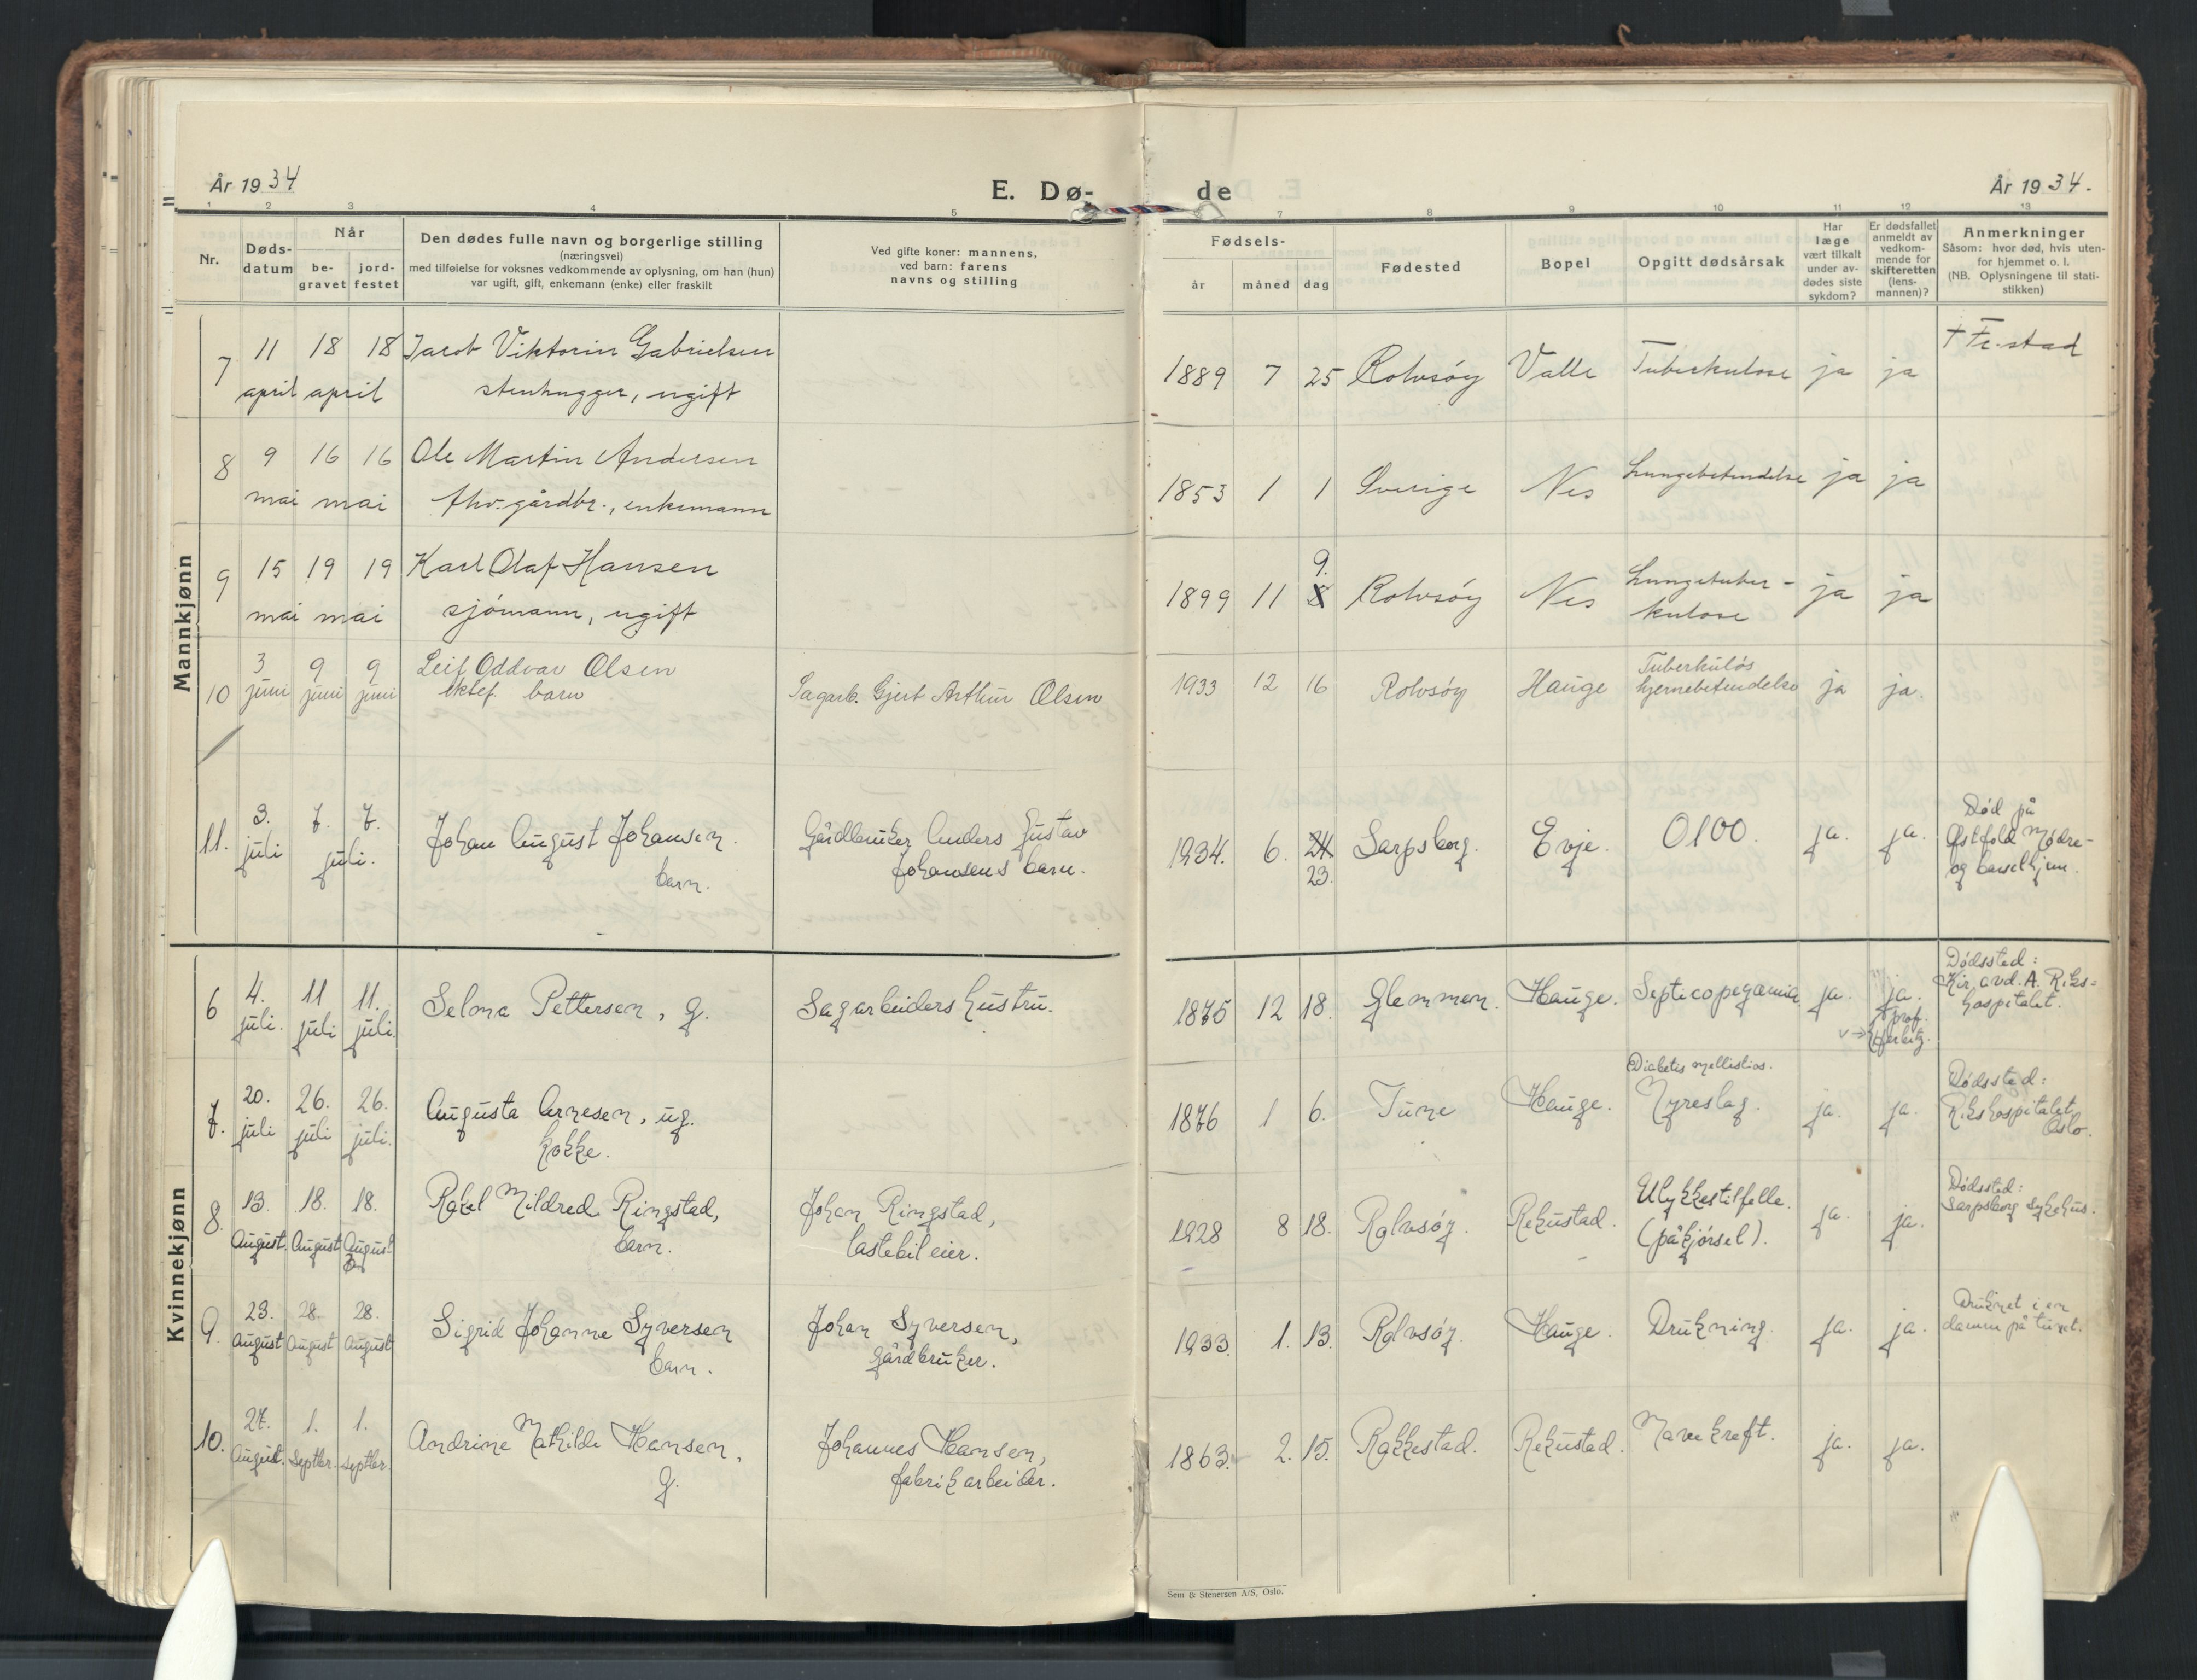 År 1934
E. Dø-
de
År 1934.
1 2 3 4 5 7 8 9 10 11 12 13
Nr.
Døds-
datum
Når
be-
gravet
jord-
festet
Den dødes fulle navn og borgerlige stilling
(næringsvei)
med tilføielse for voksnes vedkommende av oplysning, om han (hun)
var ugift, gift, enkemann (enke) eller fraskilt
Ved gifte koner: mannens,
ved barn: farens
navns og stilling
Fødsels-
år måned dag
Fødested
Bopel
Opgitt dødsårsak
Har
læge
vært tilkalt
under av-
dødes siste
sykdom?
Er dødsfallet
anmeldt av
vedkom-
mende for
skifteretten
(lens-
mannen)?
Anmerkninger
Såsom: hvor død, hvis uten-
for hjemmet o. l.
(NB. Oplysningene til stati-
stikken)
Mannkjønn
7 11 april 18 april 18 Jacob Viktorin Gabrielsen
stenhugger, ugift
1889 7 25 Rolvsøy Valle Tuberkulose ja ja
† Fr.stad
8 9 mai 16 mai 16 Ole Martin Andersen
fhv. gårdbr., enkemann
- -
1853 1 1 Sverige Nes Lungebetendelse ja ja
9 15 mai 19 mai 19 Karl Olaf Hansen
sjømann, ugift
1899 11 9. Rolvsøy Nes Lungetuber-
kulose ja ja
10 3 juni 9 juni 9 juni Leif Oddvar Olsen
ektef. barn
Sagarb. Gjert Arthur Olsen
1933 12 16 Rolvsøy Hauge Tuberkuløs
hjernebetendelse ja ja.
11. 3. juli 7. 7. juli. Johan August Johansen.
barn.
Gårdbruker Anders Gustav
Johansens barn.
1934. 6. 24 23. Sarpsborg. Evje. 0100. ja. ja.
Død på
Østfold Mødre-
og barselhjem.
Kvinnekjønn
6 4. juli. 11 juli 11. juli. Selma Pettersen, g.
Sagarbeiders hustru.
1875 12 18. Glemmen. Hauge. Septicopyæmia ja. ja.
prof.
Harbitz.
Dødssted:
Kir. avd. A. Riks-
hospitalet.
7. 20. juli 26. juli 26. juli. Augusta Arnesen, ug.
kokke.
-
1876 1 6. Tune Hauge. Diabetes mellistios.
Nyreslag. ja. ja.
Dødssted:
Rikshospitalet
Oslo.
8. 13. August. 18. August 18. August Rakel Mildred Ringstad,
barn.
Johan Ringstad,
lastebileier.
1928 8 18. Rolvsøy. Rekustad. Ulykkestilfelle.
(påkjørsel). ja. ja.
Dødssted:
Sarpsborg Sykehus.
9. 23. August 28. August 28. August Sigrid Johanne Syversen
barn.
Johan Syversen,
gårdbruker.
1933. 1. 13. Rolvsøy. Hauge. Drukning. ja. ja.
Druknet i en
damm på tunet.
10. 27. August. 1. Septbr. 1. Septbr. Andrine Mathilde Hansen,
g.
Johannes Hansen,
fabrikarbeider.
1863. 2. 15. Rakkestad. Rekustad. Mavekreft. ja. ja.
Sem & Stenersen A/S, Oslo.